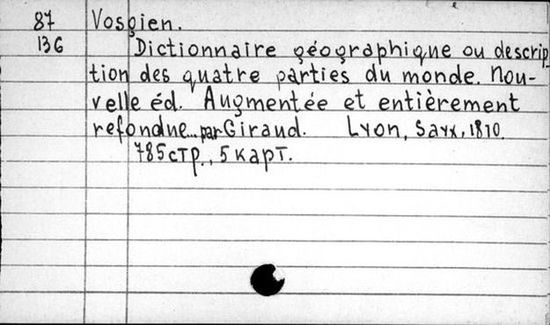 87 Vosgien.
136 Dictionnaire géographique ou descrip
tion des quatre parties du monde. Nou-
velle éd. Augmentée et entièrement
refondue... par Giraud. Lyon, Savy, 1810.
785 стр., 5 карт.